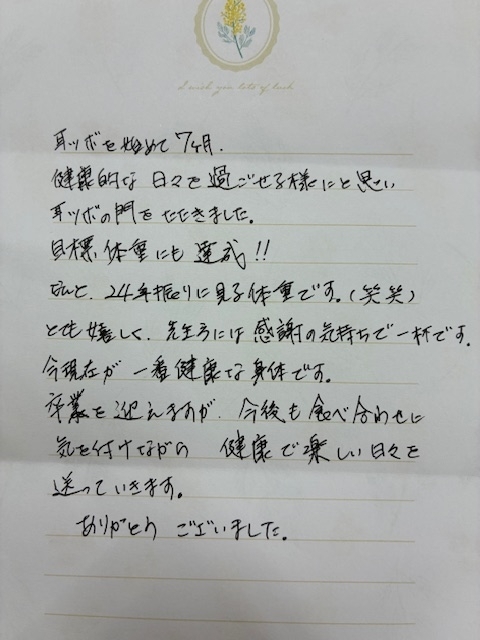 I wish you lots of luck
耳ツボを始めて7ヶ月.
健康的な日々を過ごせる様にと思い
耳ツボの門をたたきました。
目標体重にも達成!!
なんと、24年振りに見る体重です。(笑笑)
とても嬉しく、先生方には感謝の気持ちで一杯です。
今現在が一番健康な身体です。
卒業を迎えますが、今後も食べ合わせに
気を付けながら 健康で楽しい日々を
送っていきます。
ありがとう ございました。